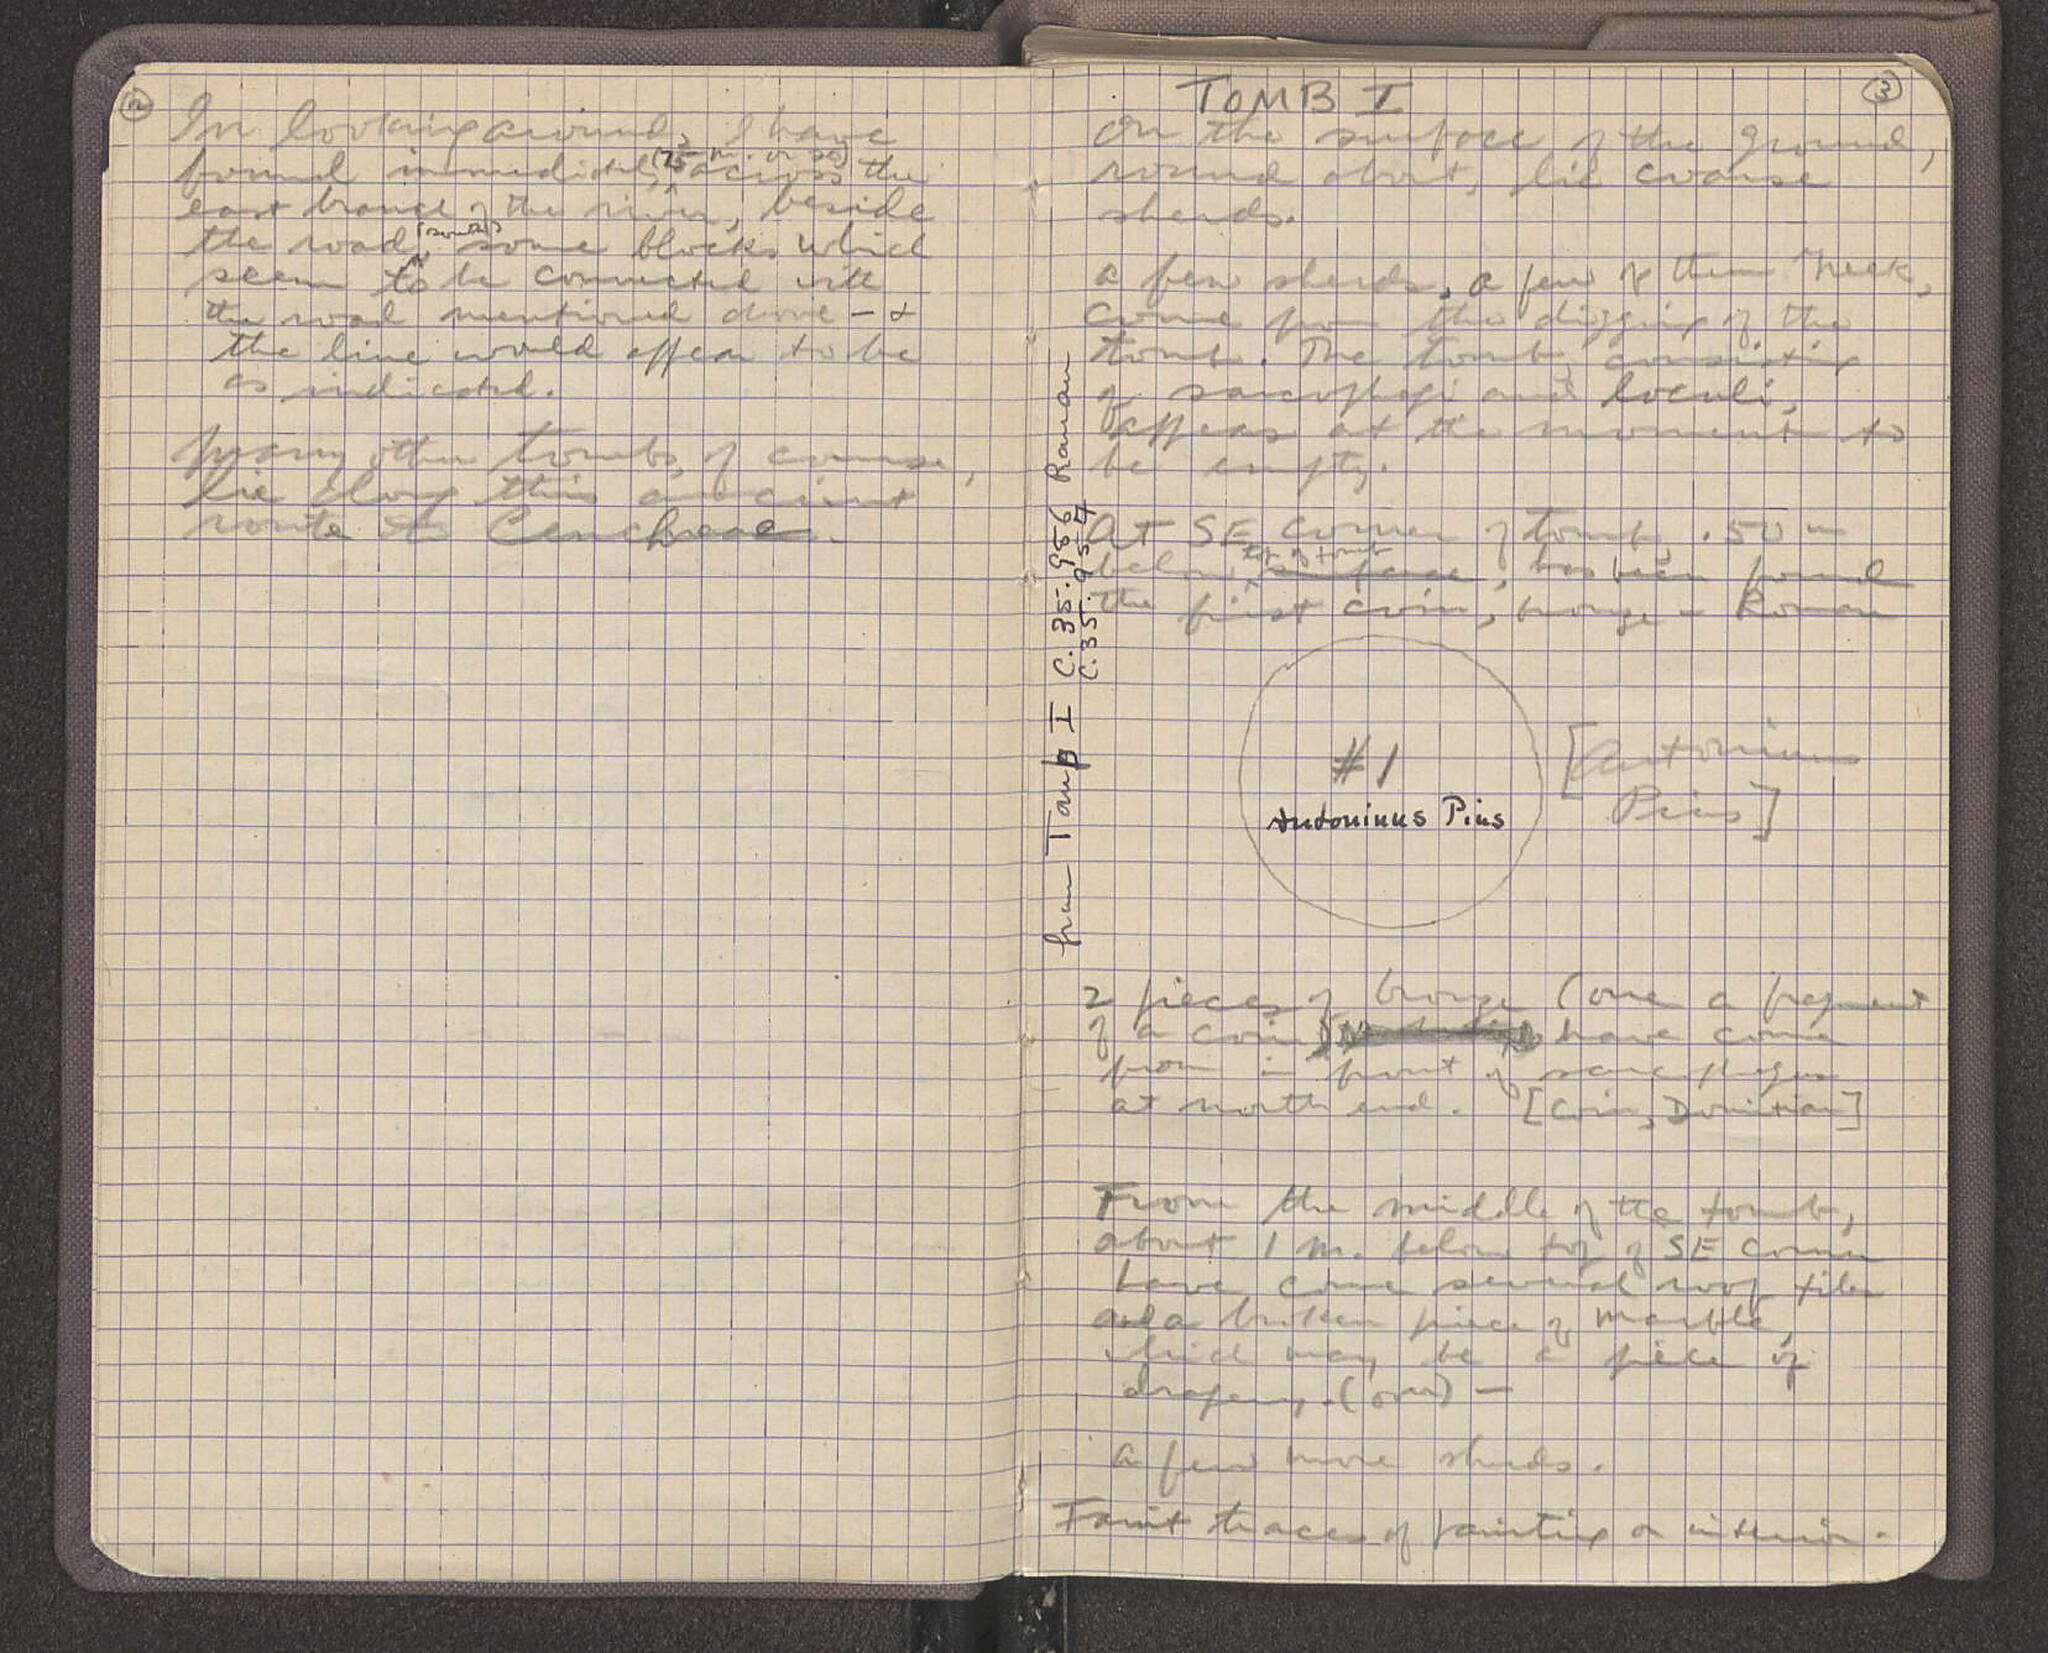 2
In looking around, I have
found immediately (75 m. or so) across the
east branch of the river, beside
the road, (south) some blocks which
seem to be connected with
the road mentioned above — &
the line would appear to be
as indicated.
Many other tombs, of course,
lie along this ancient
route to Cenchreae.
3
TOMB I
On the surface of the ground,
round about, lie coarse
sherds.
A few sherds, a few of them Greek,
come from the digging of the
tomb. The tomb, consisting
of sarcophagi and loculi,
appears at the moment to
be empty.
At SE corner of tomb, .50 m
below top of tomb surface, has been found
the first coin, bronze – Roman
#1
Antoninus Pius
[Antoninus
Pius]
from Tomb I C.35.986 Roman
C.35.954
2 pieces of bronze (one a fragment
of a coin) have come
from in front of sarcophagus
at north end. [Coin, Domitian]
From the middle of the tomb,
about 1 m. below top of SE corner
have come several roof tiles
and a broken piece of marble,
which may be a piece of
drapery. (over) —
A few more sherds.
Faint traces of painting on interior.